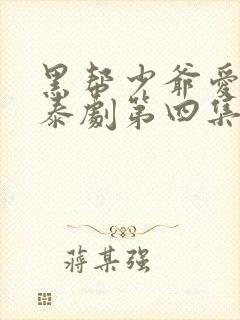 黑帮少爷爱
泰剧第四集
蒋某强